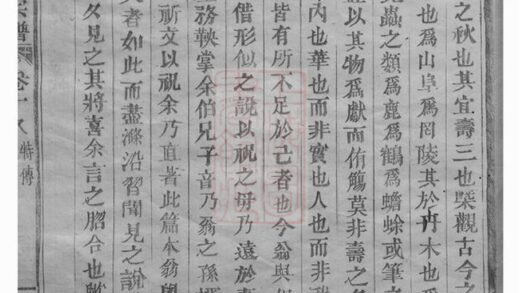 之秋也其宜壽三也槩觀古今之
也爲山阜爲罔陵其於丹木也
蟲之類爲鹿爲鶴爲蟾蜍或筆之
以其物爲獻而侑觴莫非壽之
內也華也而非實也人也而非
皆有所不足於已者也今翁與
借形似之說以祝之毋乃遠於
務鞅掌余伯兄子音乃翁之孫
祈文以祝余乃直著此篇本翁
者如此而盡滌沿習聞見之說
久見之其將喜余言之脗合也
譜 卷十八 特傳